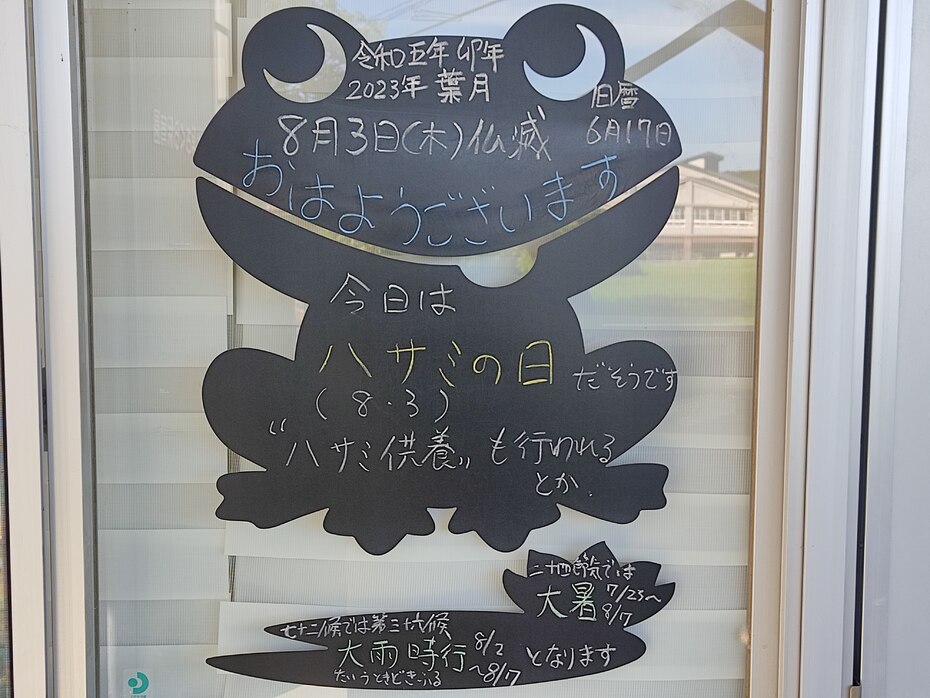 令和五年 卯年
2023年 葉月
旧暦
8月3日(木)仏滅 6月17日
おはようございます
今日は
ハサミの日 だそうです
(8・3)
“ハサミ供養” も行われる
とか.
二十四節気では
大暑 7/23〜8/7
七十二候では第三十六候
大雨時行 8/2〜8/7 となります
たいうときどきふる